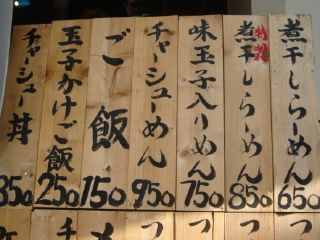 煮干しらーめん 650
特製 煮干しらーめん 850
味玉子入りめん 750
チャーシューめん 950
ご飯 150
玉子かけご飯 250
チャーシュー丼 350